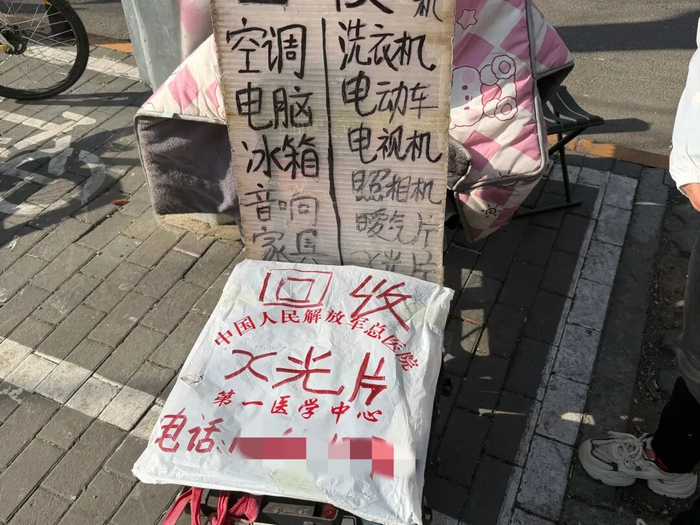 空调
电脑
冰箱
音响
家具
机
洗衣机
电动车
电视机
照相机
暧气片
X光片
回收
中国人民解放军总医院
X光片
第一医学中心
电话: